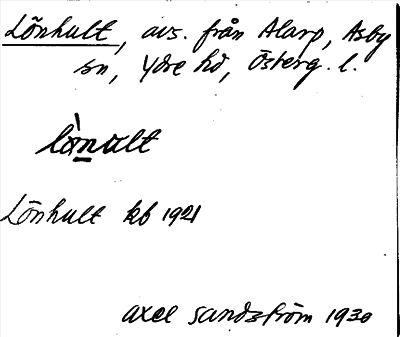 Lönhult, avs. från Alarp, Asby
sn, Ydre hd, Österg. l.
lö̀nult
Lönhult kb 1921
Axel Sandström 1930